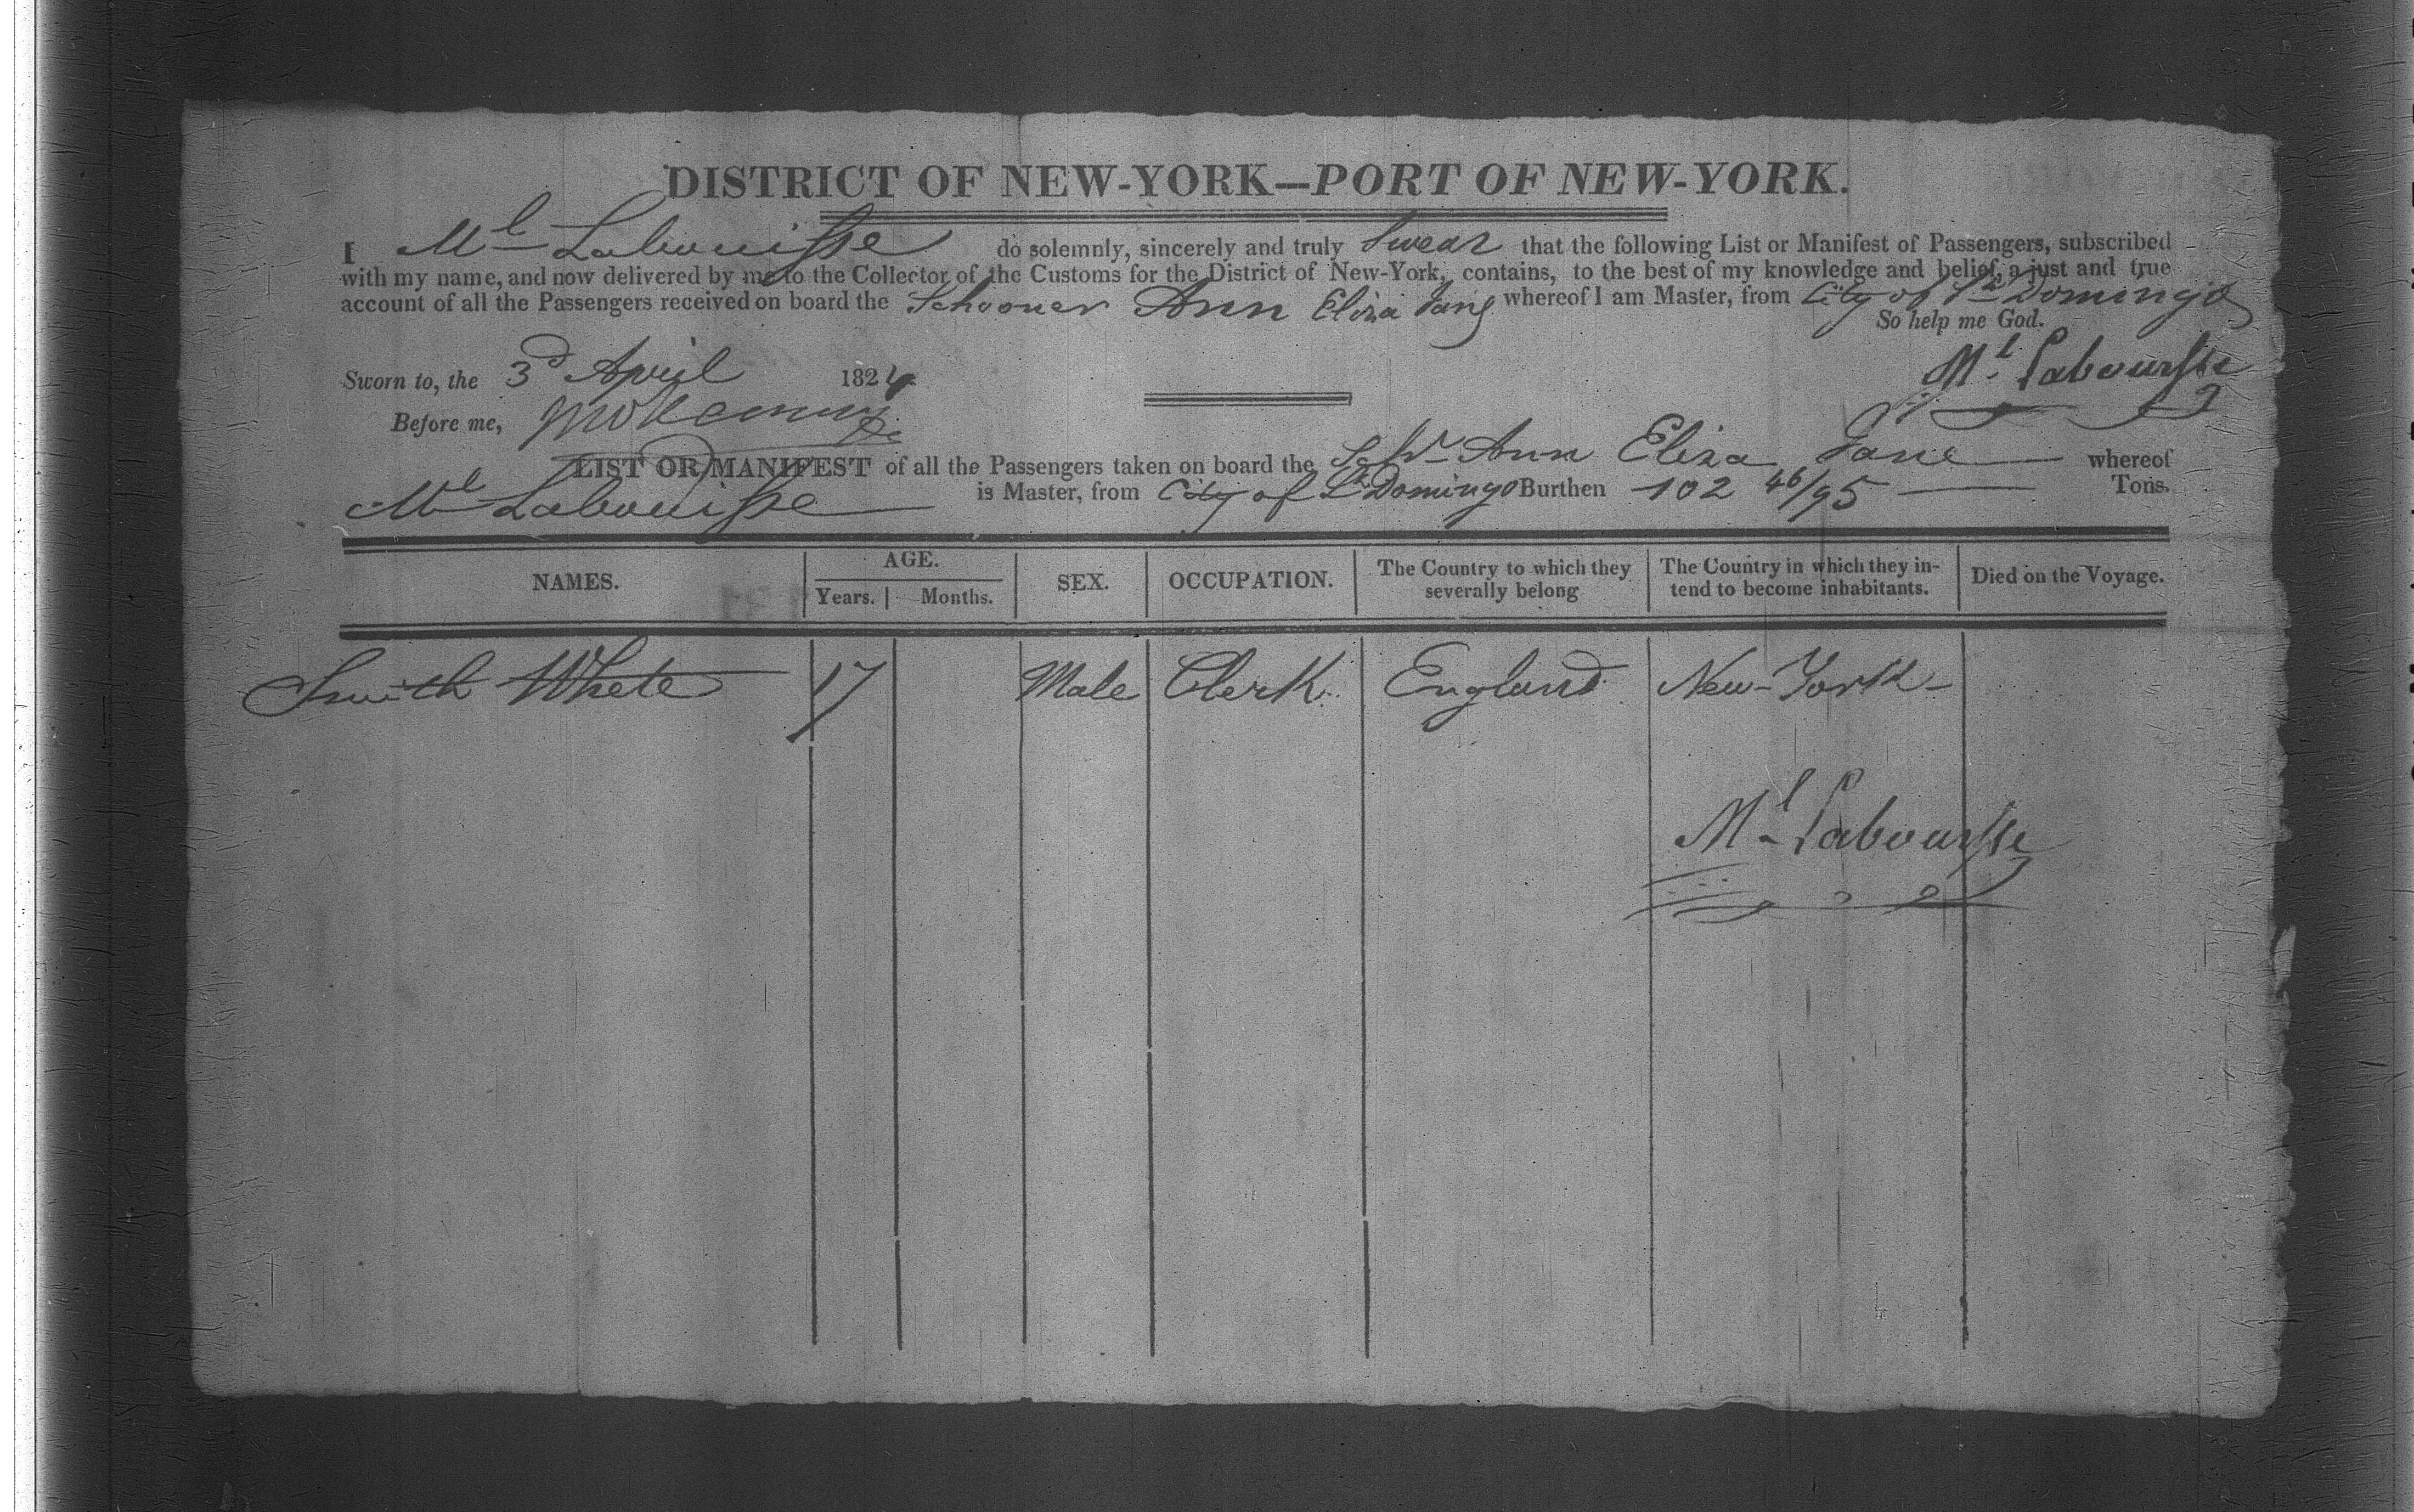 DISTRICT OF NEW-YORK—PORT OF NEW-YORK.
I Ml Labouisse do solemnly, sincerely and truly Swear that the following List or Manifest of Passengers, subscribed
with my name, and now delivered by me to the Collector of the Customs for the District of New-York, contains, to the best of my knowledge and belief, a just and true
account of all the Passengers received on board the Schooner Ann Eliza Jane whereof I am Master, from City of St Domingo
So help me God.
Sworn to, the 3d April 1824
Ml Labouisse
Before me,
LIST OR MANIFEST of all the Passengers taken on board the Schr Ann Eliza Jane whereof
Ml Labouisse is Master, from City of St Domingo Burthen 102 46/95 Tons.
NAMES. AGE. SEX. OCCUPATION. The Country to which they severally belong The Country in which they intend to become inhabitants. Died on the Voyage.
Years. Months.
Smith White 17 Male Clerk England New-York
Ml Labouisse